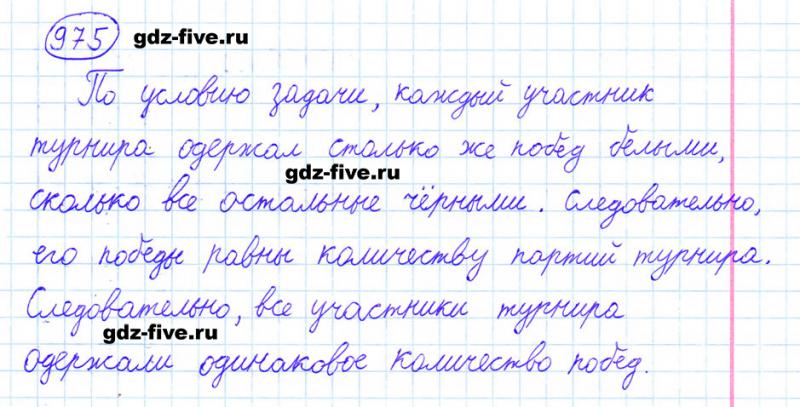 975 gdz-five.ru
По условию задачи, каждый участник
турнира одержал столько же побед белыми,
gdz-five.ru
сколько все остальные чёрными. Следовательно,
его победы равны количеству партий турнира.
Следовательно, все участники турнира
gdz-five.ru
одержали одинаковое количество побед.